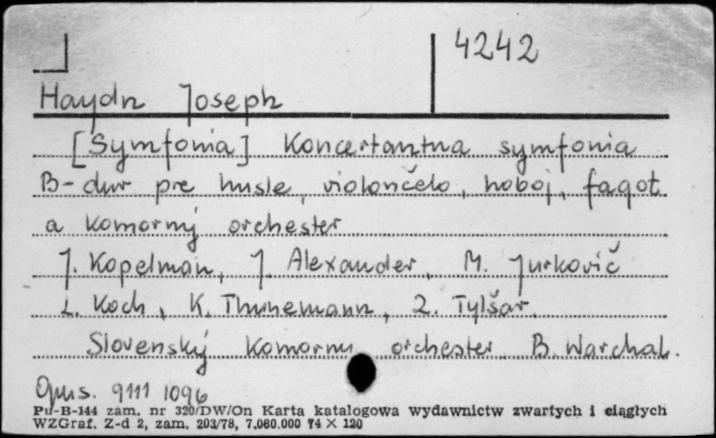 4242
Haydn Joseph
[Symfonia] Koncertantna symfonia
B-dur pre husle, violončelo, hoboj, fagot
a komorný orchester
J. Kopelman, J. Alexander, M. Jurkovič
L. Koch, K. Thunemann, Z. Tylšar.
Slovenský komorny orchester B. Warchal.
Opus. 9111 1096
Pu-B-144 zam. nr 320/DW/On Karta katalogowa wydawnictw zwartych i ciągłych
WZGraf. Z-d 2, zam. 203/78, 7.080.000 74 X 120